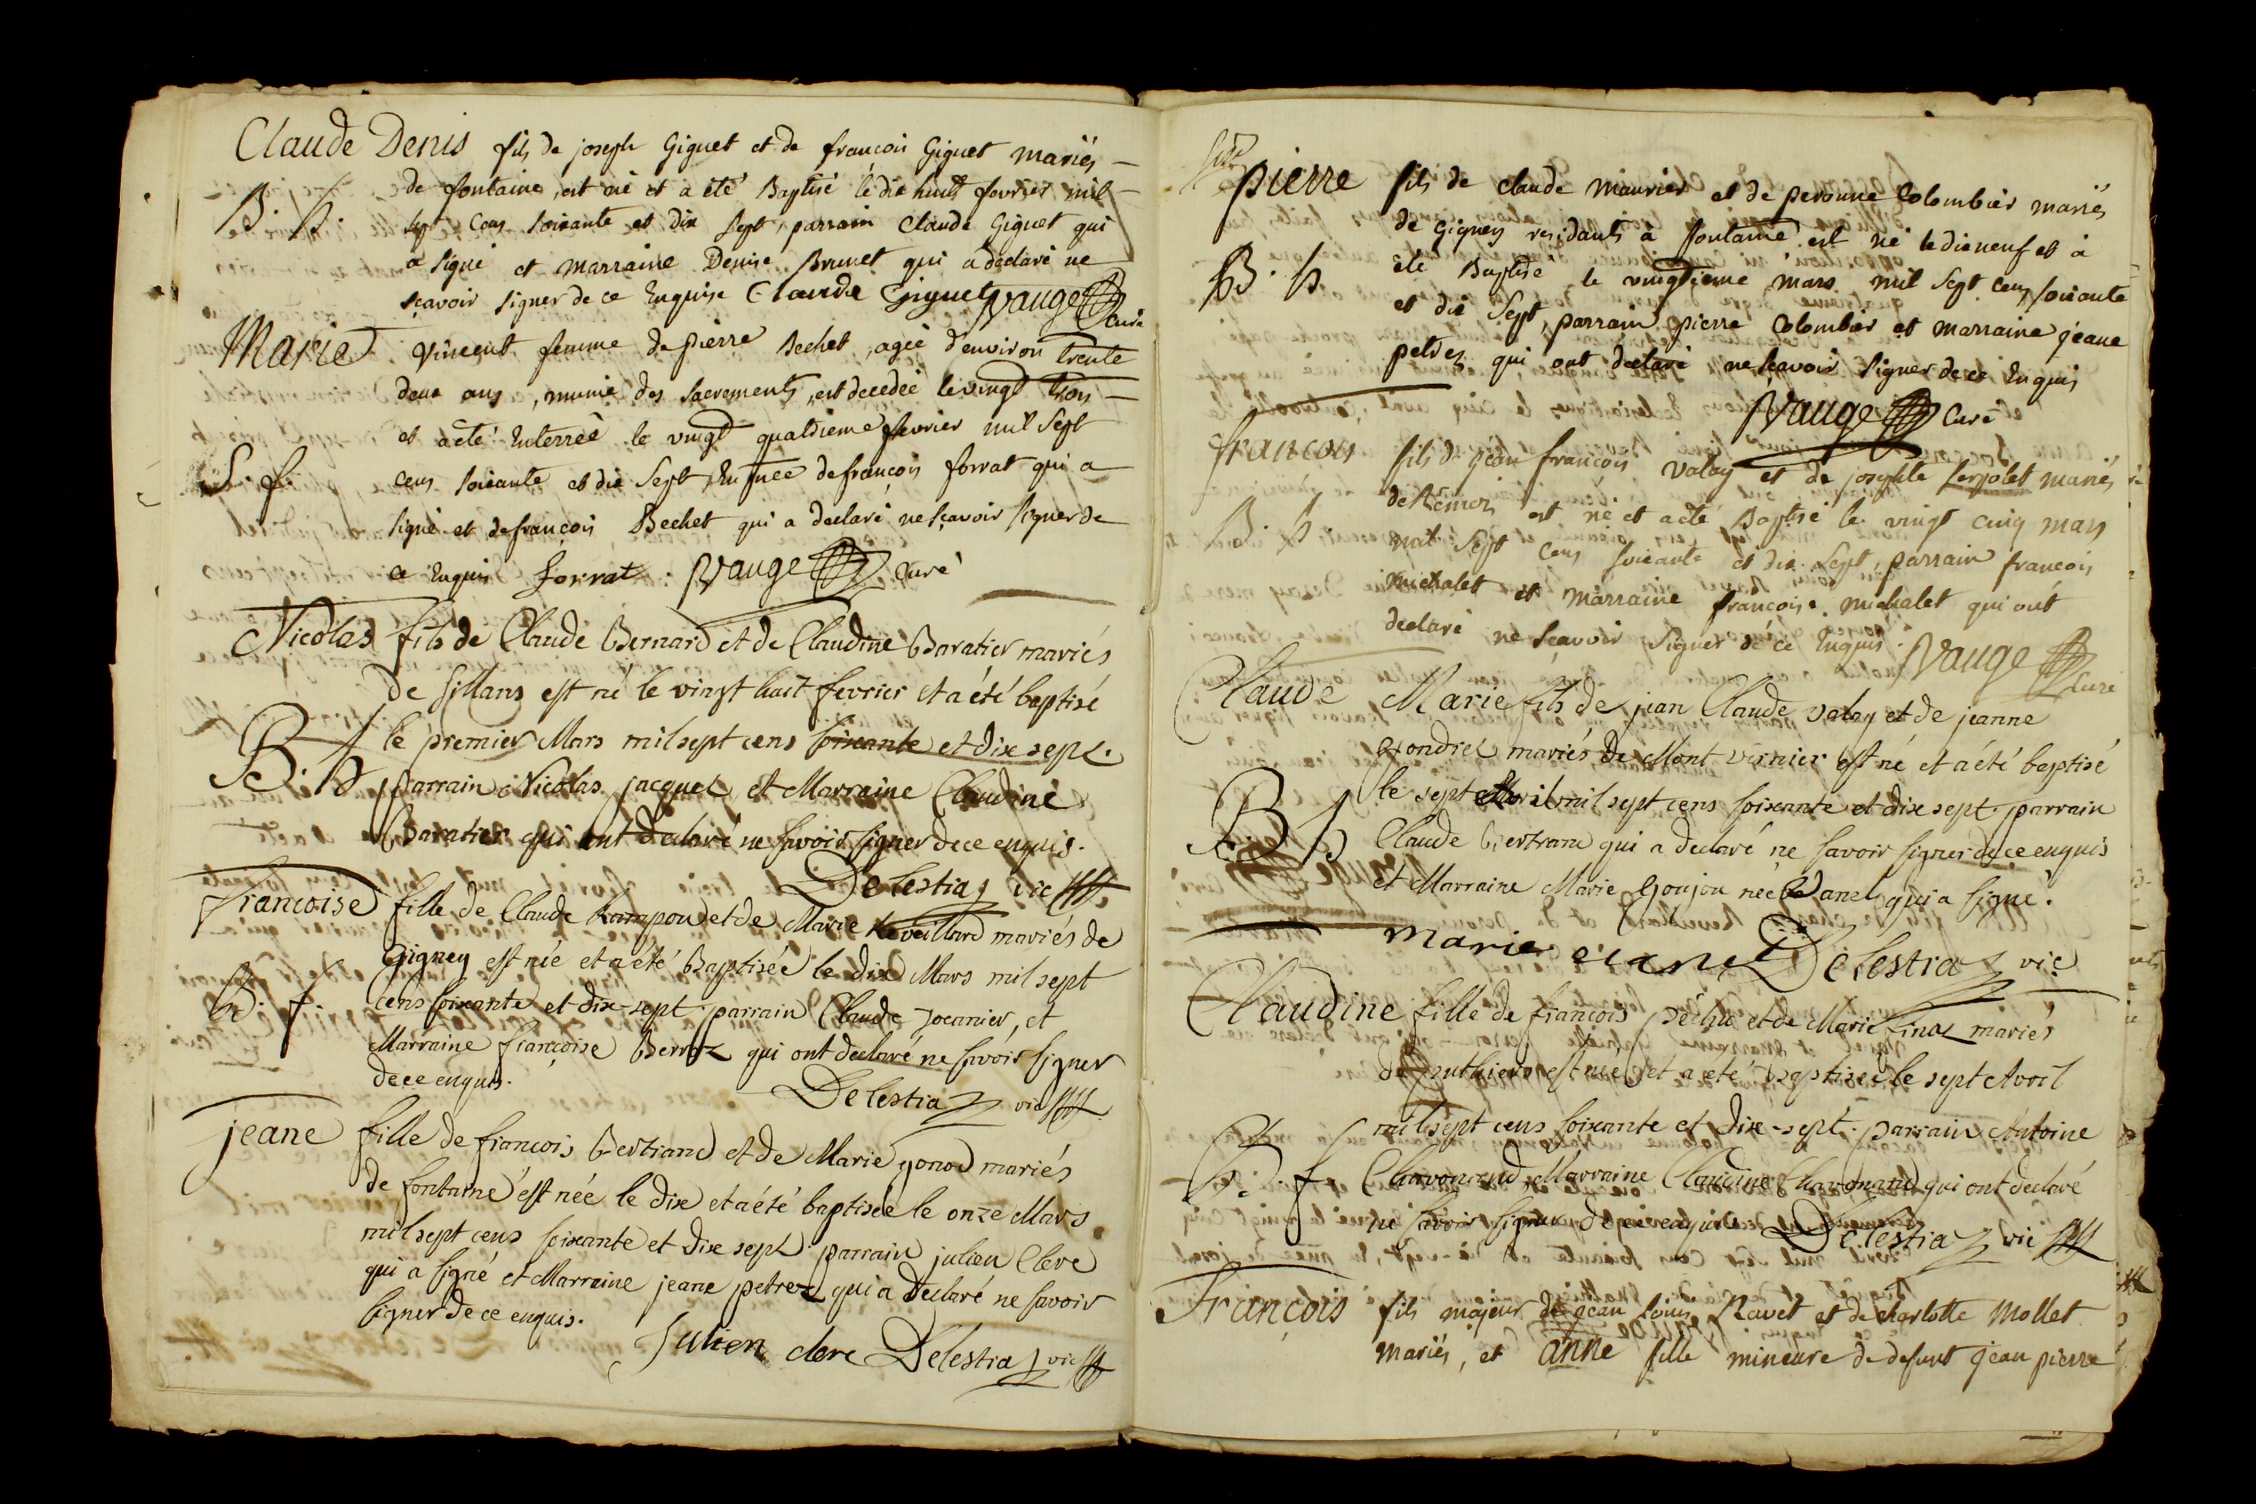 Claude Denis fils de joseph Giguet et de francois Giguet mariés
de fontaine, est né et a été Baptisé le dix huit fevrier mil
B. h. sept cens soixante et dix sept, parrain Claude Giguet qui
a signé et marraine Denise Brunet qui a declaré ne
sçavoir signer de ce Enquise Claude Giguet Vauge curé
Marie Vincent femme de pierre Bechet, agée d'environ trente
deux ans, munie des sacrements, est decedée le vingt trois
et a été Enterrée le vingt quatrieme fevrier mil sept
S. f. cens soixante et dix sept, En presence de françois forrat qui a
signé et de françois Bechet qui a declaré ne sçavoir signer de
ce Enquis forrat : Vauge Curé
Nicolas fils de Claude Bernard et de Claudine Baratier mariés
de Sillans est né le vingt huit fevrier et a été baptisé
B. h le premier Mars mil sept cens soixante et dix sept.
parrain Nicolas jacquet et Marraine Claudine
Baratier qui ont declaré ne savoir signer de ce enquis.
Delestraz vic
francoise fille de Claude Kampon et de Marie Reveillard mariés de
Gigney est née et a été Baptisée le dix Mars mil sept
B. f. cens soixante et dix-sept. parrain Claude Jocanier, et
Marraine françoise Berroz qui ont declaré ne savoir signer
de ce enquis.
Delestraz vic
jeane fille de francois Bertrand et de Marie gonod mariés
de fontaine est née le dix et a été baptisée le onze Mars
mil sept cens soixante et dix sept. parrain julien Clerc
qui a signé et Marraine jeane petrez qui a declaré ne savoir
signer de ce enquis.
Julien clerc Delestraz vic
pierre fils de claude maurier et de peronne Colombier mariés
de Gigney residants à fontaine est né le dix neuf et à
B. h été Baptisé le vingtieme mars mil sept cens soixante
et dix sept, parrain pierre Colombier et marraine jeane
petrez qui ont declaré ne scavoir signer de ce Enquis
Vauge Curé
francois fils de jean françois Valay et de josephte serpolet mariés
de Rémoz est né et a été Baptisé le vingt cinq mars
B. h. mil sept cens soixante et dix sept, parrain françois
michalet et marraine françoise michalet qui ont
declaré ne sçavoir signer de ce Enquis. Vauge Curé
Claude Marie fils de jean Claude valay et de jeanne
gondret mariés de Mont vernier est né et a été baptisé
le sept Avril mil sept cens soixante et dix sept. parrain
B h Claude Bertrand qui a declaré ne savoir signer de ce enquis
et Marraine Marie Goujon née Canet qui a signé.
marie canet Delestraz vic
Claudine fille de francois péchu et de Marie finas mariés
de est née et a été baptisée le sept Avril
mil sept cens soixante et dix-sept. parrain Antoine
B. f. Chavonrend, Marraine Claudine Chavonand qui ont declaré
ne savoir signer de ce enquis. Delestraz vic
François fils majeur de jean louis Ravet et de charlotte Mollet
mariés, et anne fille mineure de defunt jean pierre